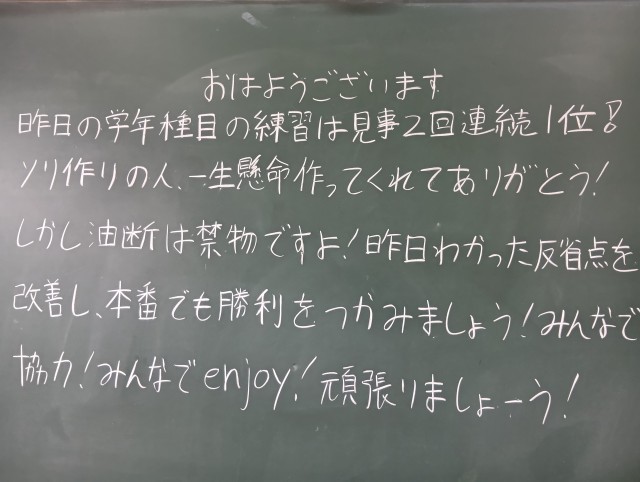 おはようございます
昨日の学年種目の練習は見事2回連続1位!
ソリ作りの人、一生懸命作ってくれてありがとう!
しかし油断は禁物ですよ!昨日わかった反省点を
改善し、本番でも勝利をつかみましょう!みんなで
協力!みんなでenjoy!頑張りましょーう!